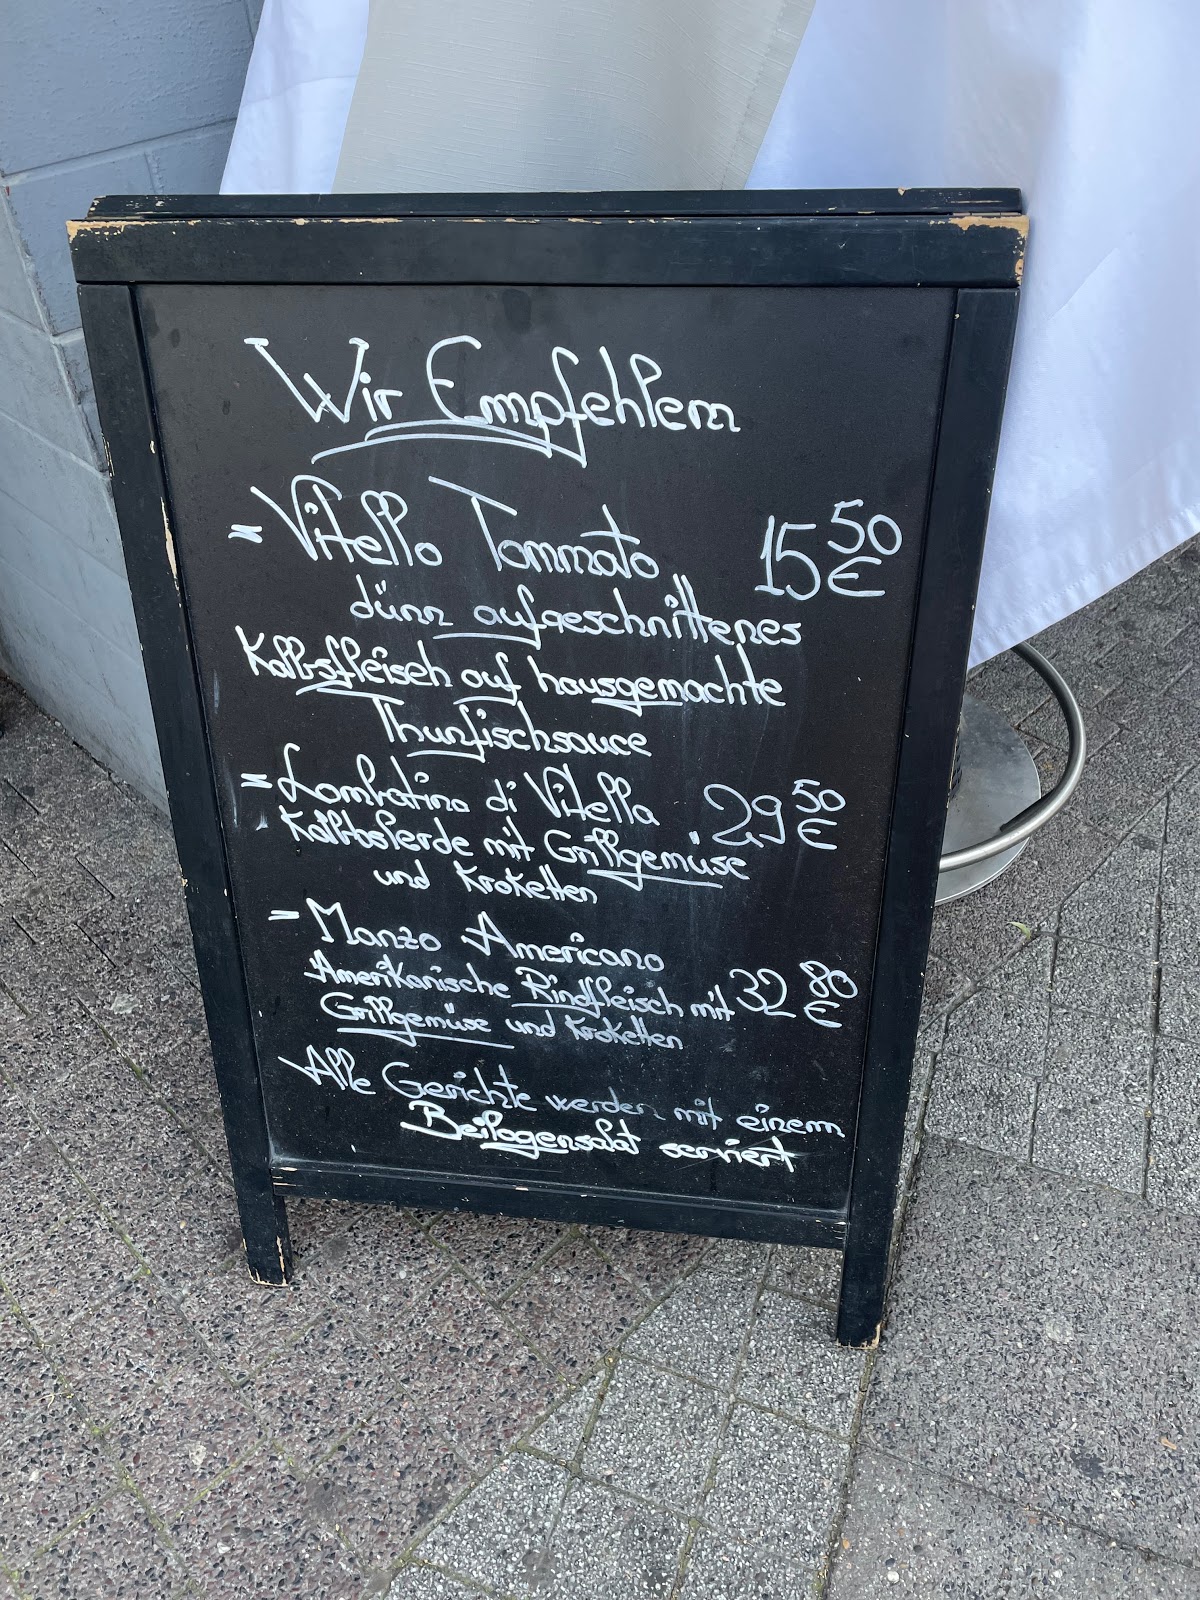 Wir Empfehlern
= Vitello Tommato 15 50 €
dünn aufgeschnittenes
Kalbsfleisch auf hausgemachte
Thunfischsauce
= Lombatina di Vitella 29 50 €
mit Grillgemüse
und Kroketten
= Manzo Americano
Amerikanische Rindfleisch mit 32 80 €
Grillgemüse und Kroketten
Alle Gerichte werden mit einem
Beilagensalat serviert